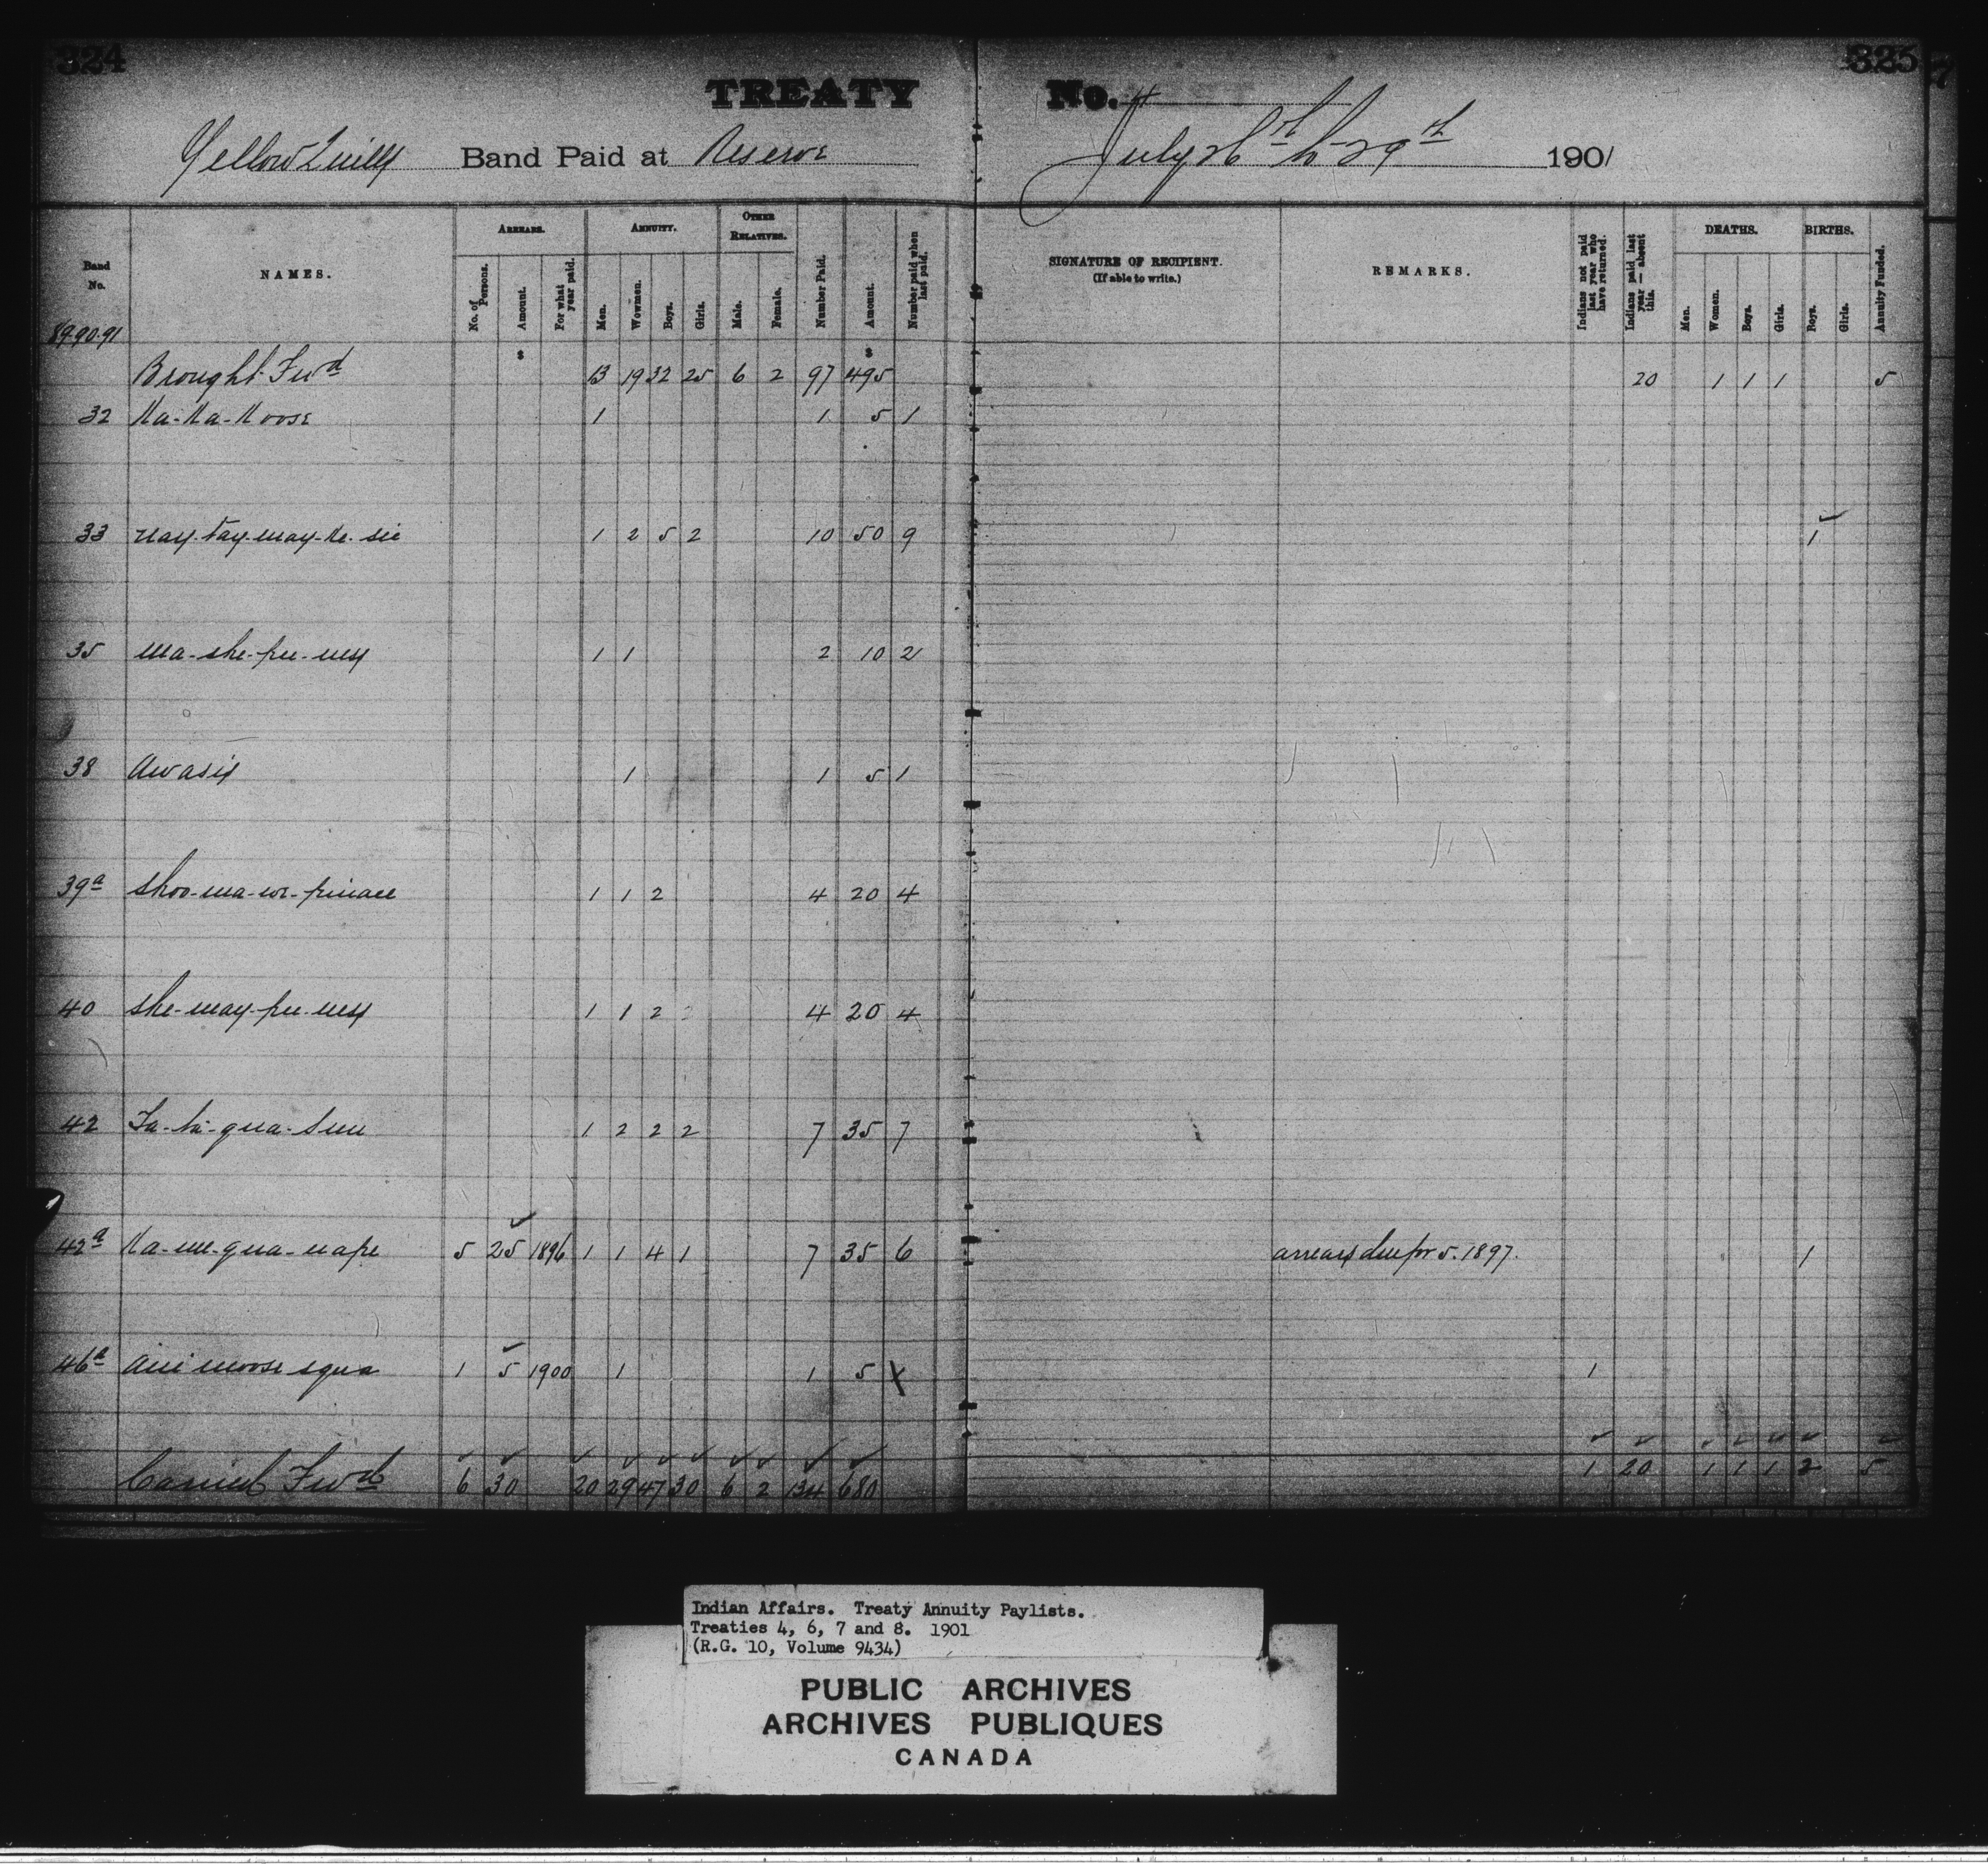 324
325
TREATY No. 4
Yellow Quills Band Paid at Reserve July 26th to 29th 1901
Band No. NAMES. ARREARS. ANNUITY. OTHER RELATIVES. Number Paid. Amount. Number paid when last paid. SIGNATURE OF RECIPIENT. (If able to write.) REMARKS. Indians not paid last year who have returned. Indians paid last year — absent this. DEATHS. BIRTHS. Annuity Funded.
No. of Persons. Amount. For what year paid. Men. Wowmen. Boys. Girls. Male. Female. Men. Women. Boys. Girls. Boys. Girls.
89-90-91
$ $
Brought Fwd 13 19 32 25 6 2 97 495 20 1 1 1 5
32 Ka-Ka-Koose 1 1 5 1
33 nay-tay-way-ke-sic 1 2 5 2 10 50 9 1
35 Ma-she-pee-ness 1 1 2 10 2
38 Awasis 1 1 5 1
39a Shoo-wa-we-pinace 1 1 2 4 20 4
40 She-way-pee-ness 1 1 2 4 20 4
42 Ta-ta-qua-sun 1 2 2 2 7 35 7
42a Ka-me-qua-nape 5 25 1896 1 1 4 1 7 35 6 arrears due for 5. 1897. 1
46a Ani moose squa 1 5 1900 1 1 5 X 1
Carried Fwd 6 30 20 29 47 30 6 2 134 680 1 20 1 1 1 2 5
Indian Affairs. Treaty Annuity Paylists.
Treaties 4, 6, 7 and 8. 1901
(R.G. 10, Volume 9434)
PUBLIC ARCHIVES
ARCHIVES PUBLIQUES
CANADA